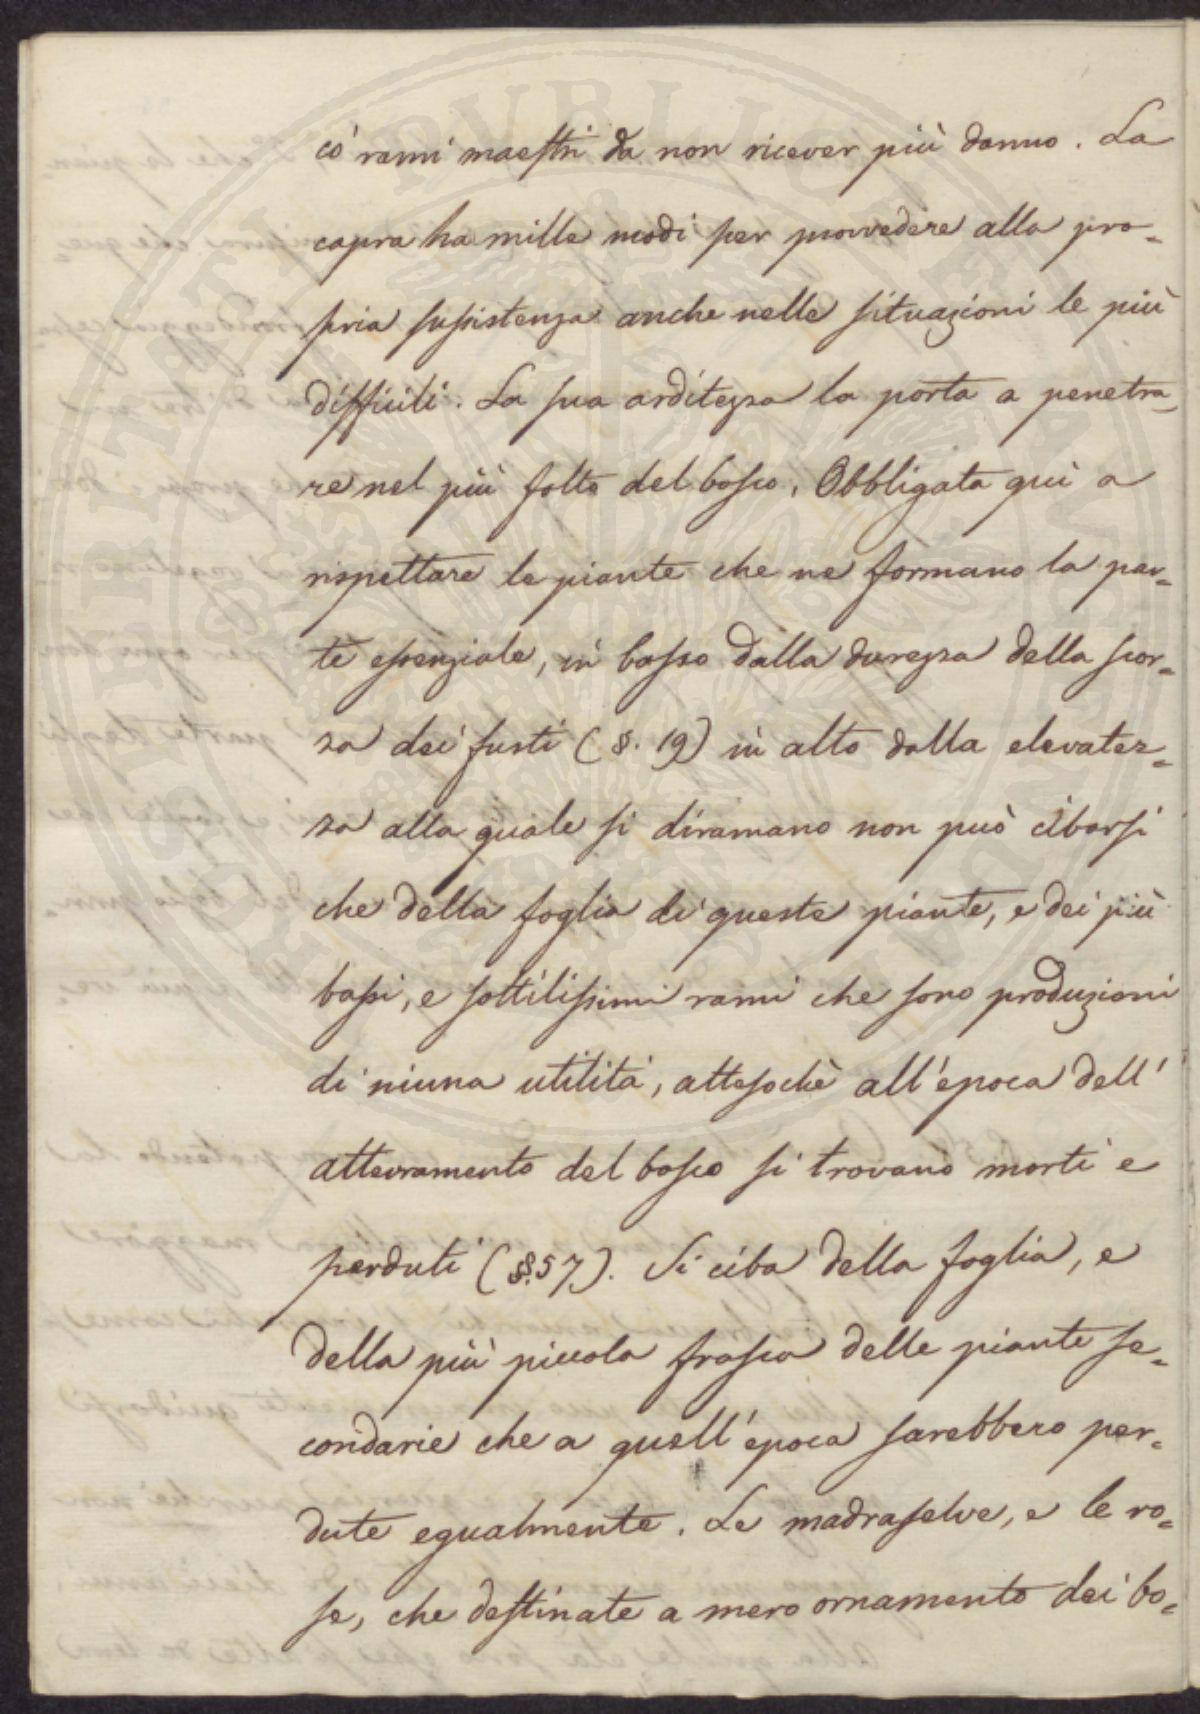 cò rami maestri da non ricever più danno. La
capra ha mille modi per provvedere alla pro=
pria sussistenza anche nelle situazioni le più
difficili. La sua arditezza la porta a penetra=
re nel più folto del bosco. Obbligata quì a
rispettare le piante che ne formano la par=
te essenziale, in basso dalla durezza della scor=
za dei fusti (§. 19) in alto dalla elevatez=
za alla quale si diramano non può cibarsi
che della foglia di queste piante, e dei più
bassi, e sottilissimi rami che sono produzioni
di niuna utilità, attesochè all'epoca dell'
atterramento del bosco si trovano morti e
perduti (§§. 57). Si ciba della foglia, e
della più piccola frasca delle piante se=
condarie che a quell'epoca sarebbero per=
dute egualmente. Le madreselve, e le ro=
se, che destinate a mero ornamento dei bo=